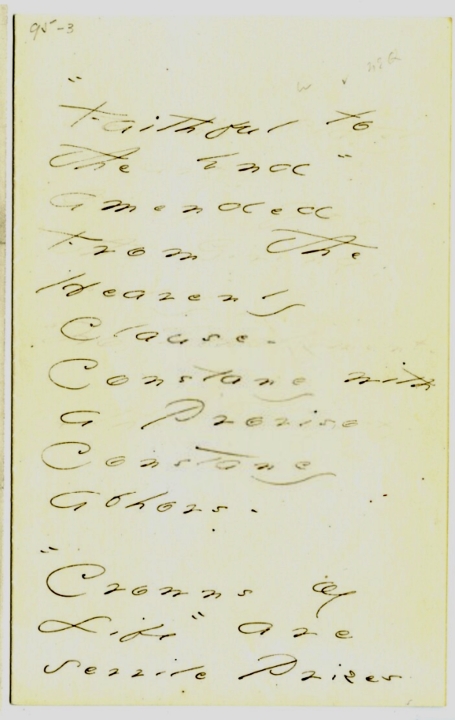 95-3
"
Faithful to
the End"
Amended
From the
Heavenly
Clause -
Constancy with
a Proviso
Constancy
abhors -
"
Crowns of
Life" are
servile Prizes